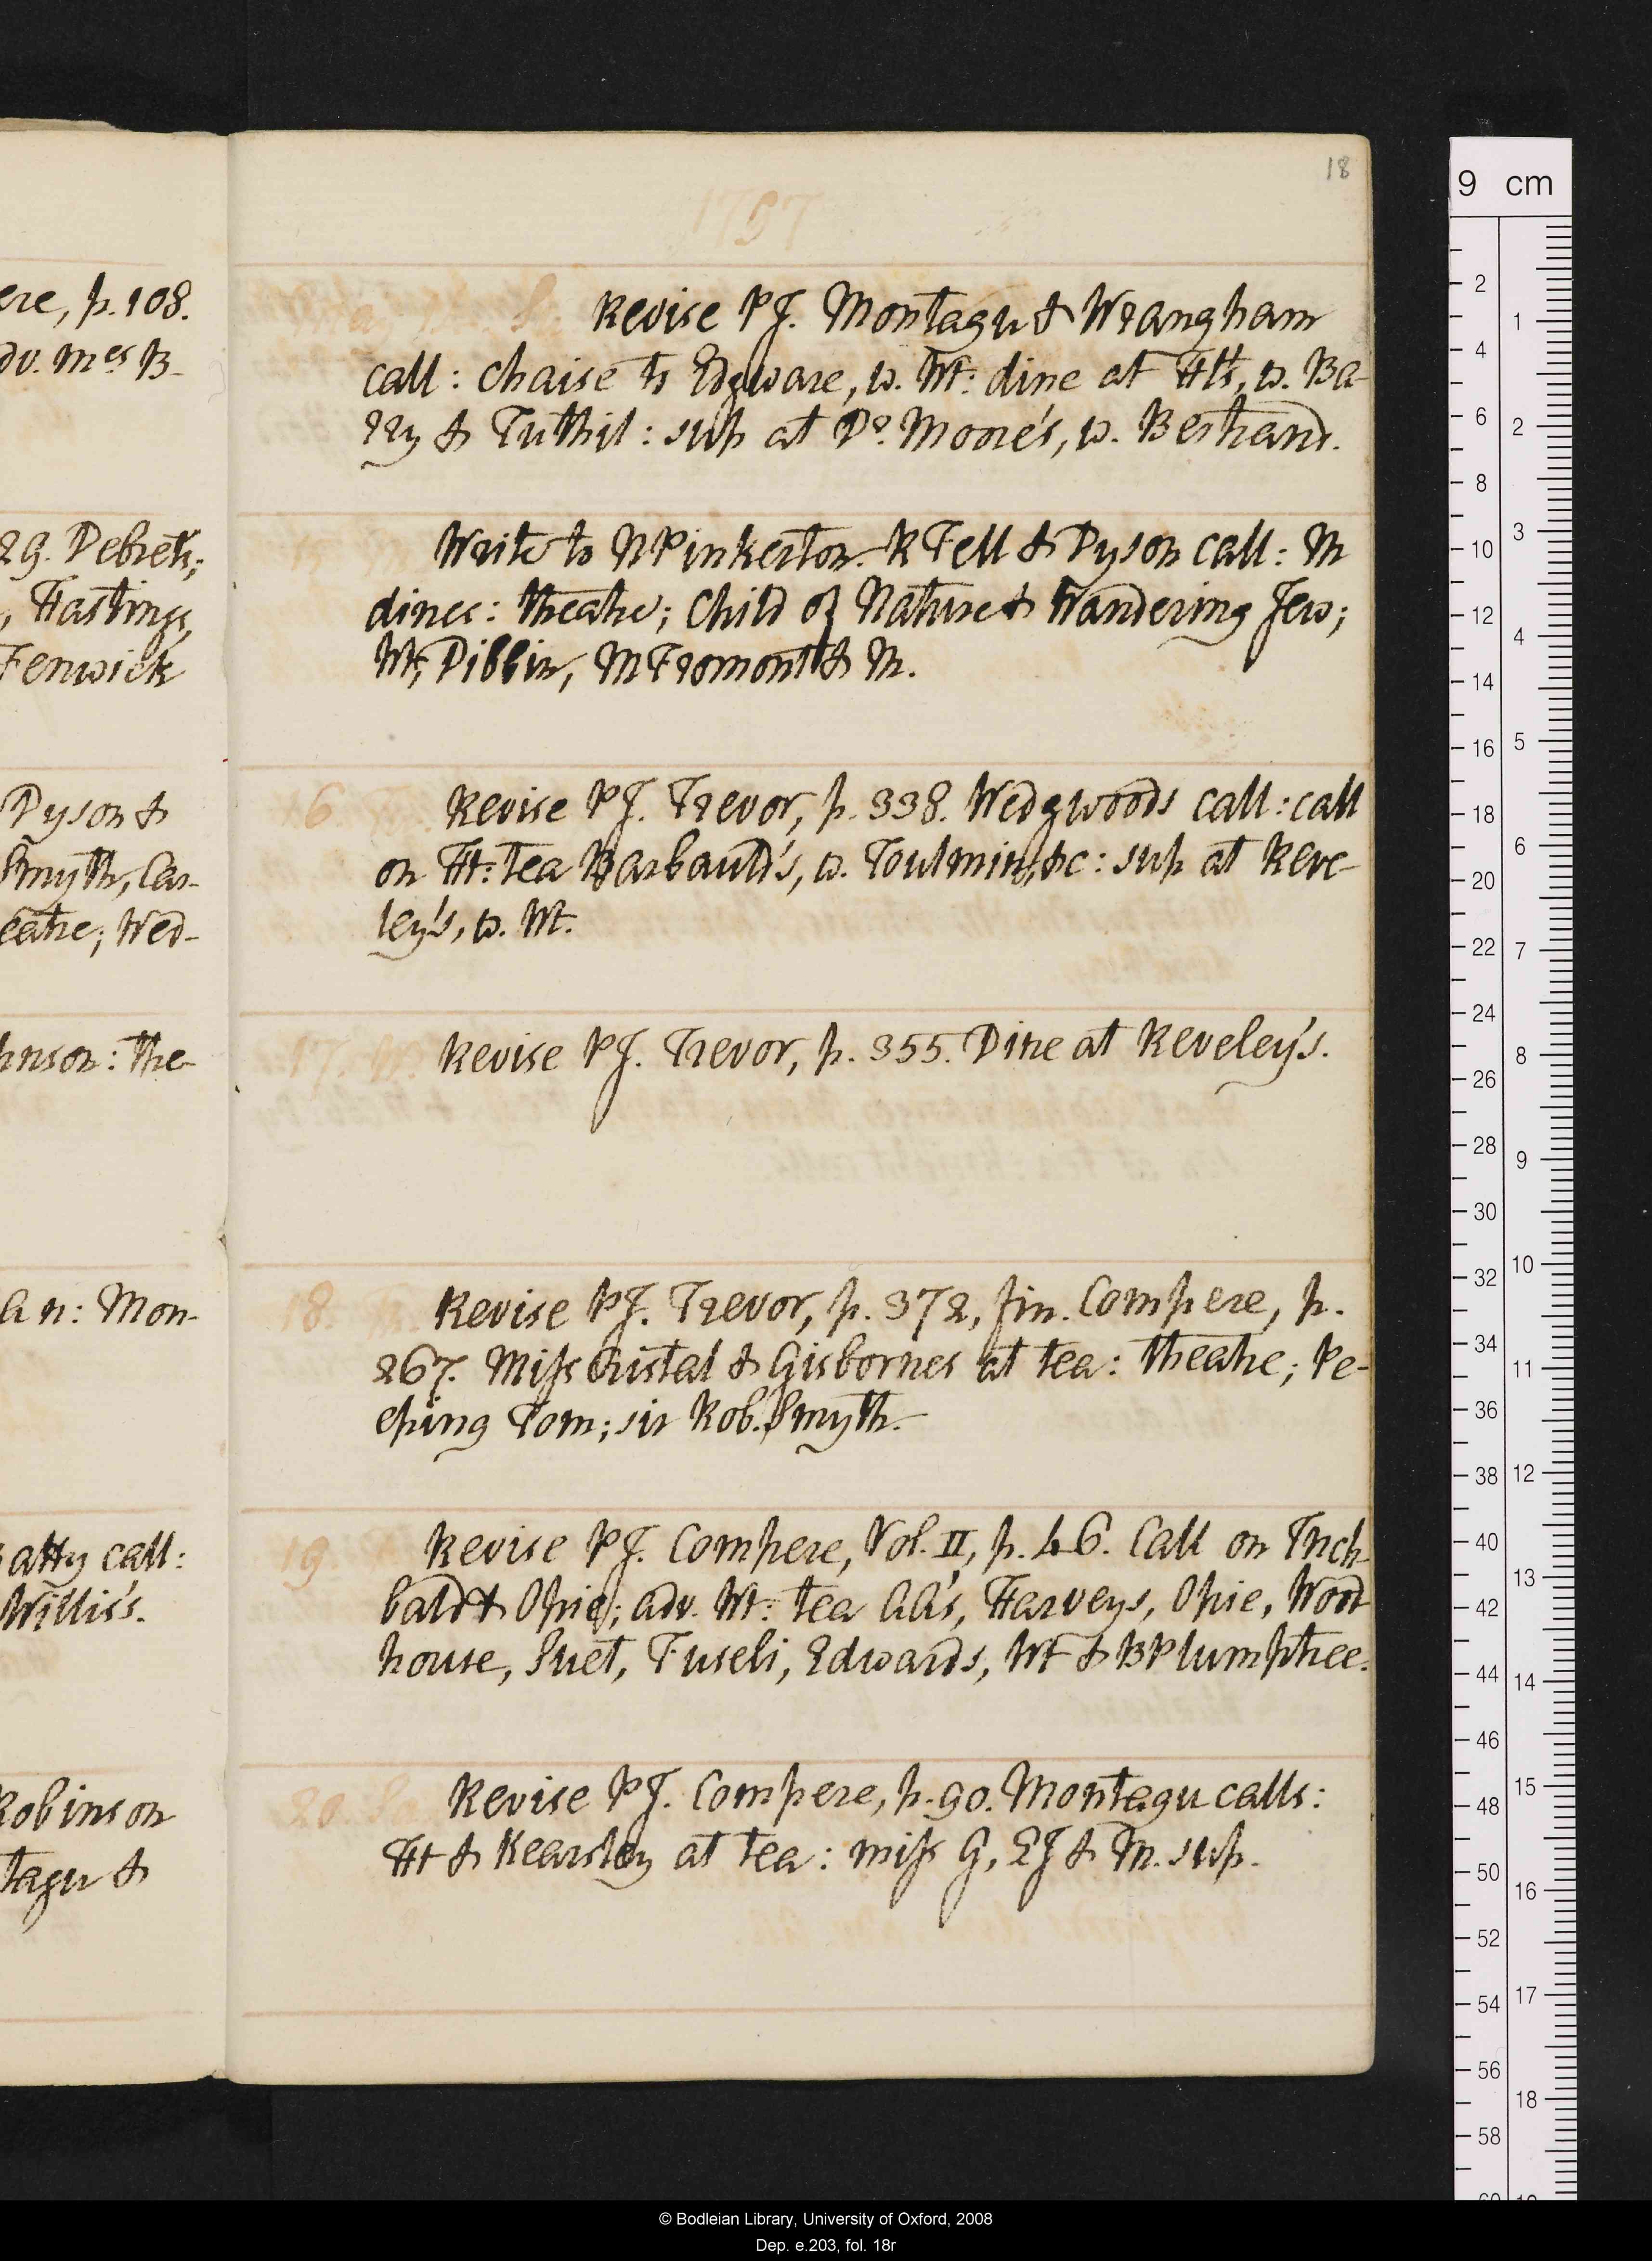 ere, p. 108.
dv. mrs B.
29. Debrett;
, Hastings,
Fenwick
Dyson &
Smyth, Car-
eatre; Wed-
hnson: the-
an: Mon-
atty call:
Willis's.
Robinson
tagu &
18
1797
Revise PJ. Montagu & Wrangham
call: chaise to Edgware, w. Wt: dine at Ht's, w. Ba-
rry & Tuthil: sup at Dr. Moore's, w. Bertrand.
Write to N Pinkerton. R Fell & Dyson call: M
dines: theatre; Child of Nature & Wandering Jew;
Wt, Dibbin, M Fromont & M.
16
Revise PJ. Trevor, p. 338. Wedgwoods call: call
on Ht: tea Barbauld's, w. Toulmin, &c: sup at Reve-
ley's, w. Wt.
17.
Revise PJ. Trevor, p. 355. Dine at Reveley's.
18.
Revise PJ. Trevor, p. 372, fin. Compere, p.
267. Miss Cristal & Gisbornes at tea: theatre; Pe-
eping Tom; sir Rob. Smyth.
19.
Revise PJ. Compere, Vol. II, p. 46. Call on Inch
bald & Opie; adv. Wt: tea AA's, Harveys, Opie, Wood
house, Suet, Fuseli, Edwards, Wt & B Plumptree.
20.
Revise PJ. Compere, p. 90. Montagu calls:
Ht & Kearsley at tea: miss G, EJ & M. sup.
9 cm
2 4 6 8 10 12 14 16 18 20 22 24 26 28 30 32 34 36 38 40 42 44 46 48 50 52 54 56 58 60
1 2 3 4 5 6 7 8 9 10 11 12 13 14 15 16 17 18
© Bodleian Library, University of Oxford, 2008
Dep. e.203, fol. 18r